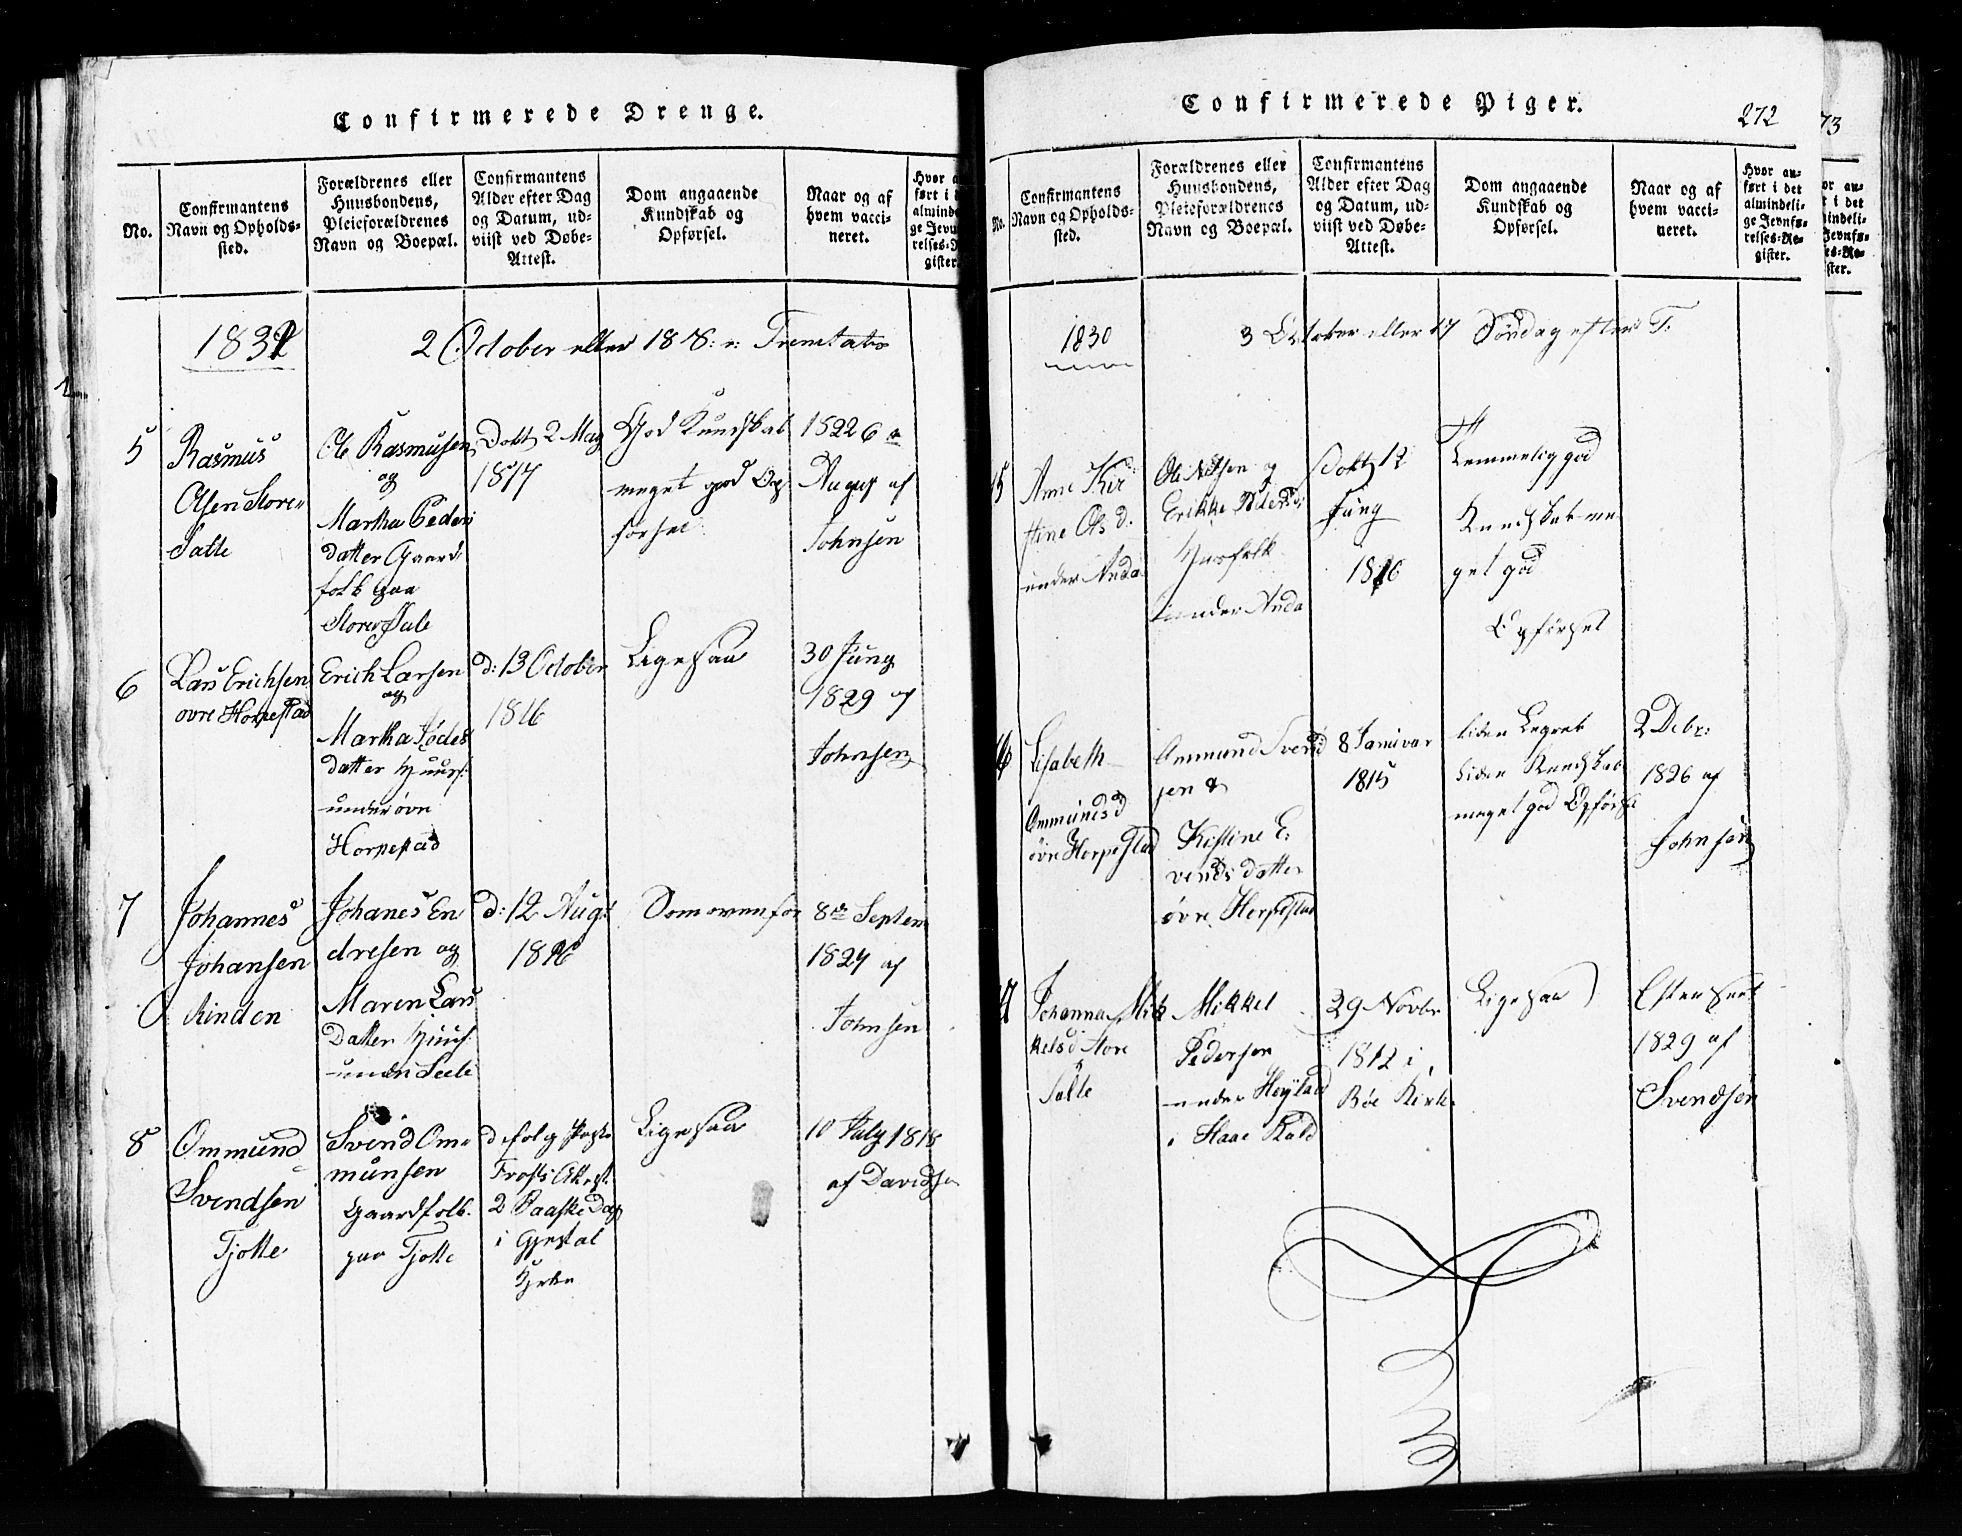 Confirmerede Drenge.
No.
Confirmantens
Navn og Opholds-
sted.
Forældrenes eller
Huusbondens,
Pleieforældrenes
Navn og Boepæl.
Confirmantens
Alder efter Dag
og Datum, ud-
viist ved Døbe-
Attest.
Dom angaaende
Kundskab og
Opførsel.
Naar og af
hvem vacci-
neret.
2 October eller 18
5
Rasmus
Olsen Store
Salte
Ole Rasmusen
og
Martha Peders
datter Gaard
folk paa
Store Sale
Døbt 2 May
1817
God Kundskab
meget god Op
førsel
af
Johnsen
6
Lars Erichsen
øvre Horpestad
Erich Larsen
og
Martha
datter Huusf:
under øvre
Horpestad
d: 13 October
1816
Ligesaa
30 Juny
1829 af
Johnsen
7
Johannes
Johansen
Rinden
Johanes En
dresen og
Maren Lars
Datter Huusf
under Seele
d: 12 Augt
1816
Som ovenfor
8de Septem
1827 af
Johnsen
8
Ommund
Svendsen
Tjotte
Svend Om-
munsen
Gaardfolk
paa Tjotte
2 Paaske Dag
i Gjestal
Ligesaa
10 July 1818
af Davidsen
Confirmerede Piger.
272
No.
Confirmantens
Navn og Opholds-
sted.
Forældrenes eller
Huusbondens,
Pleieforældrenes
Navn og Boepæl.
Confirmantens
Alder efter Dag
og Datum, ud-
viist ved Døbe-
Attest.
Dom angaaende
Kundskab og
Opførsel.
Naar og af
hvem vacci-
neret.
Hvor an-
ført i det
almindeli-
ge Jevnfø-
relses-Re-
gister.
1830
3 October eller 17 Søndag efter T.
15
Anne Kir
stine Ols d.
under Anda
Ole og
Erikke
Husfolk
under Anda
Døbt 12
Juny
1816
Temmelig god
Kundskab me
get god
Opførsel
16
Lisabeth
Ommunds d
øvre Horpestad
Ommund Svend
sen &
Kistine E.
vends datter
øvre Horpestad
8 Januar
1815
liden Begreb
liden Kundskab
meget god Opførsel
2 Debr:
1826 af
Johnsen
17
Johanna Mik
kelsd Store
Salte
Mikkel
Pedersen
under Høyland
i Haae
29 Novbr
1812 i
Bøe Kirke
Ligesaa
1829 af
Svendsen
73